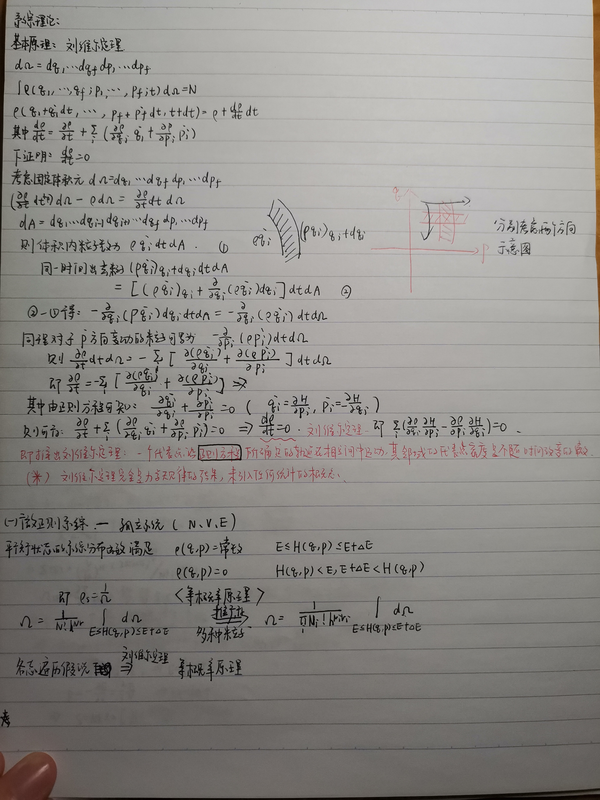 系综理论：
基本原理：刘维尔定理
dΩ = dq₁ … dq_f dp₁ … dp_f
∫ρ(q₁, …, q_f; p₁, …, p_f; t) dΩ = N
ρ(q₁+q̇₁dt, …, p_f+ṗ_f dt, t+dt) = ρ + dρ/dt dt
其中 dρ/dt = ∂ρ/∂t + Σᵢ (∂ρ/∂qᵢ q̇ᵢ + ∂ρ/∂pᵢ ṗᵢ)
下证明：dρ/dt = 0
考虑固定体积元 dΩ = dq₁ … dq_f dp₁ … dp_f
(ρ + ∂ρ/∂t dt) dΩ − ρ dΩ = ∂ρ/∂t dt dΩ
dA = dq₁ … dqᵢ₋₁ dqᵢ₊₁ … dq_f dp₁ … dp_f
则体积内粒子数为 ρq̇ᵢ dt dA . ①
ρq̇ᵢ (ρq̇ᵢ)qᵢ+dqᵢ
q p
分别考虑两个方向
示意图
同一时间出去粒子 (ρq̇ᵢ)qᵢ+dqᵢ dt dA
= [(ρq̇ᵢ)qᵢ + ∂/∂qᵢ (ρq̇ᵢ) dqᵢ] dt dA ②
②−①得：−∂/∂qᵢ (ρq̇ᵢ) dqᵢ dt dA = −∂/∂qᵢ (ρq̇ᵢ) dt dΩ
同理对于 p 方向变动的粒子可写为 −∂/∂pᵢ (ρṗᵢ) dt dΩ
则 ∂ρ/∂t dt dΩ = −Σᵢ [∂(ρq̇ᵢ)/∂qᵢ + ∂(ρṗᵢ)/∂pᵢ] dt dΩ
即 ∂ρ/∂t = −Σᵢ [∂(ρq̇ᵢ)/∂qᵢ + ∂(ρṗᵢ)/∂pᵢ] ⇒
其中由正则方程可知：∂q̇ᵢ/∂qᵢ + ∂ṗᵢ/∂pᵢ = 0 (q̇ᵢ = ∂H/∂pᵢ, ṗᵢ = −∂H/∂qᵢ)
则可有：∂ρ/∂t + Σᵢ (∂ρ/∂qᵢ q̇ᵢ + ∂ρ/∂pᵢ ṗᵢ) = 0 ⇒ dρ/dt = 0 . 刘维尔定理. 即 Σᵢ(∂ρ/∂qᵢ ∂H/∂pᵢ − ∂ρ/∂pᵢ ∂H/∂qᵢ) = 0 .
即推导出刘维尔定理：一个代表点沿正则方程所确定的轨道在相空间中运动，其邻域的代表点密度是个不随时间改变的常数.
(※) 刘维尔定理完全是力学规律的结果，未引入任何统计的概念.
(一) 微正则系综 — 孤立系统 (N, V, E)
平衡状态的系综分布函数满足 ρ(q,p) = 常数 E≤H(q,p)≤E+ΔE
ρ(q,p) = 0 H(q,p)<E, E+ΔE<H(q,p)
即 ρₛ = 1/Ω <等概率原理>
Ω = 1/(N! h^Nr) ∫_{E≤H(q,p)≤E+ΔE} dΩ 推广 ⇒ 多种粒子 Ω = 1/(Πᵢ Nᵢ! h^Nᵢrᵢ) ∫_{E≤H(q,p)≤E+ΔE} dΩ
各态遍历假说 刘维尔定理 ⇒ 等概率原理